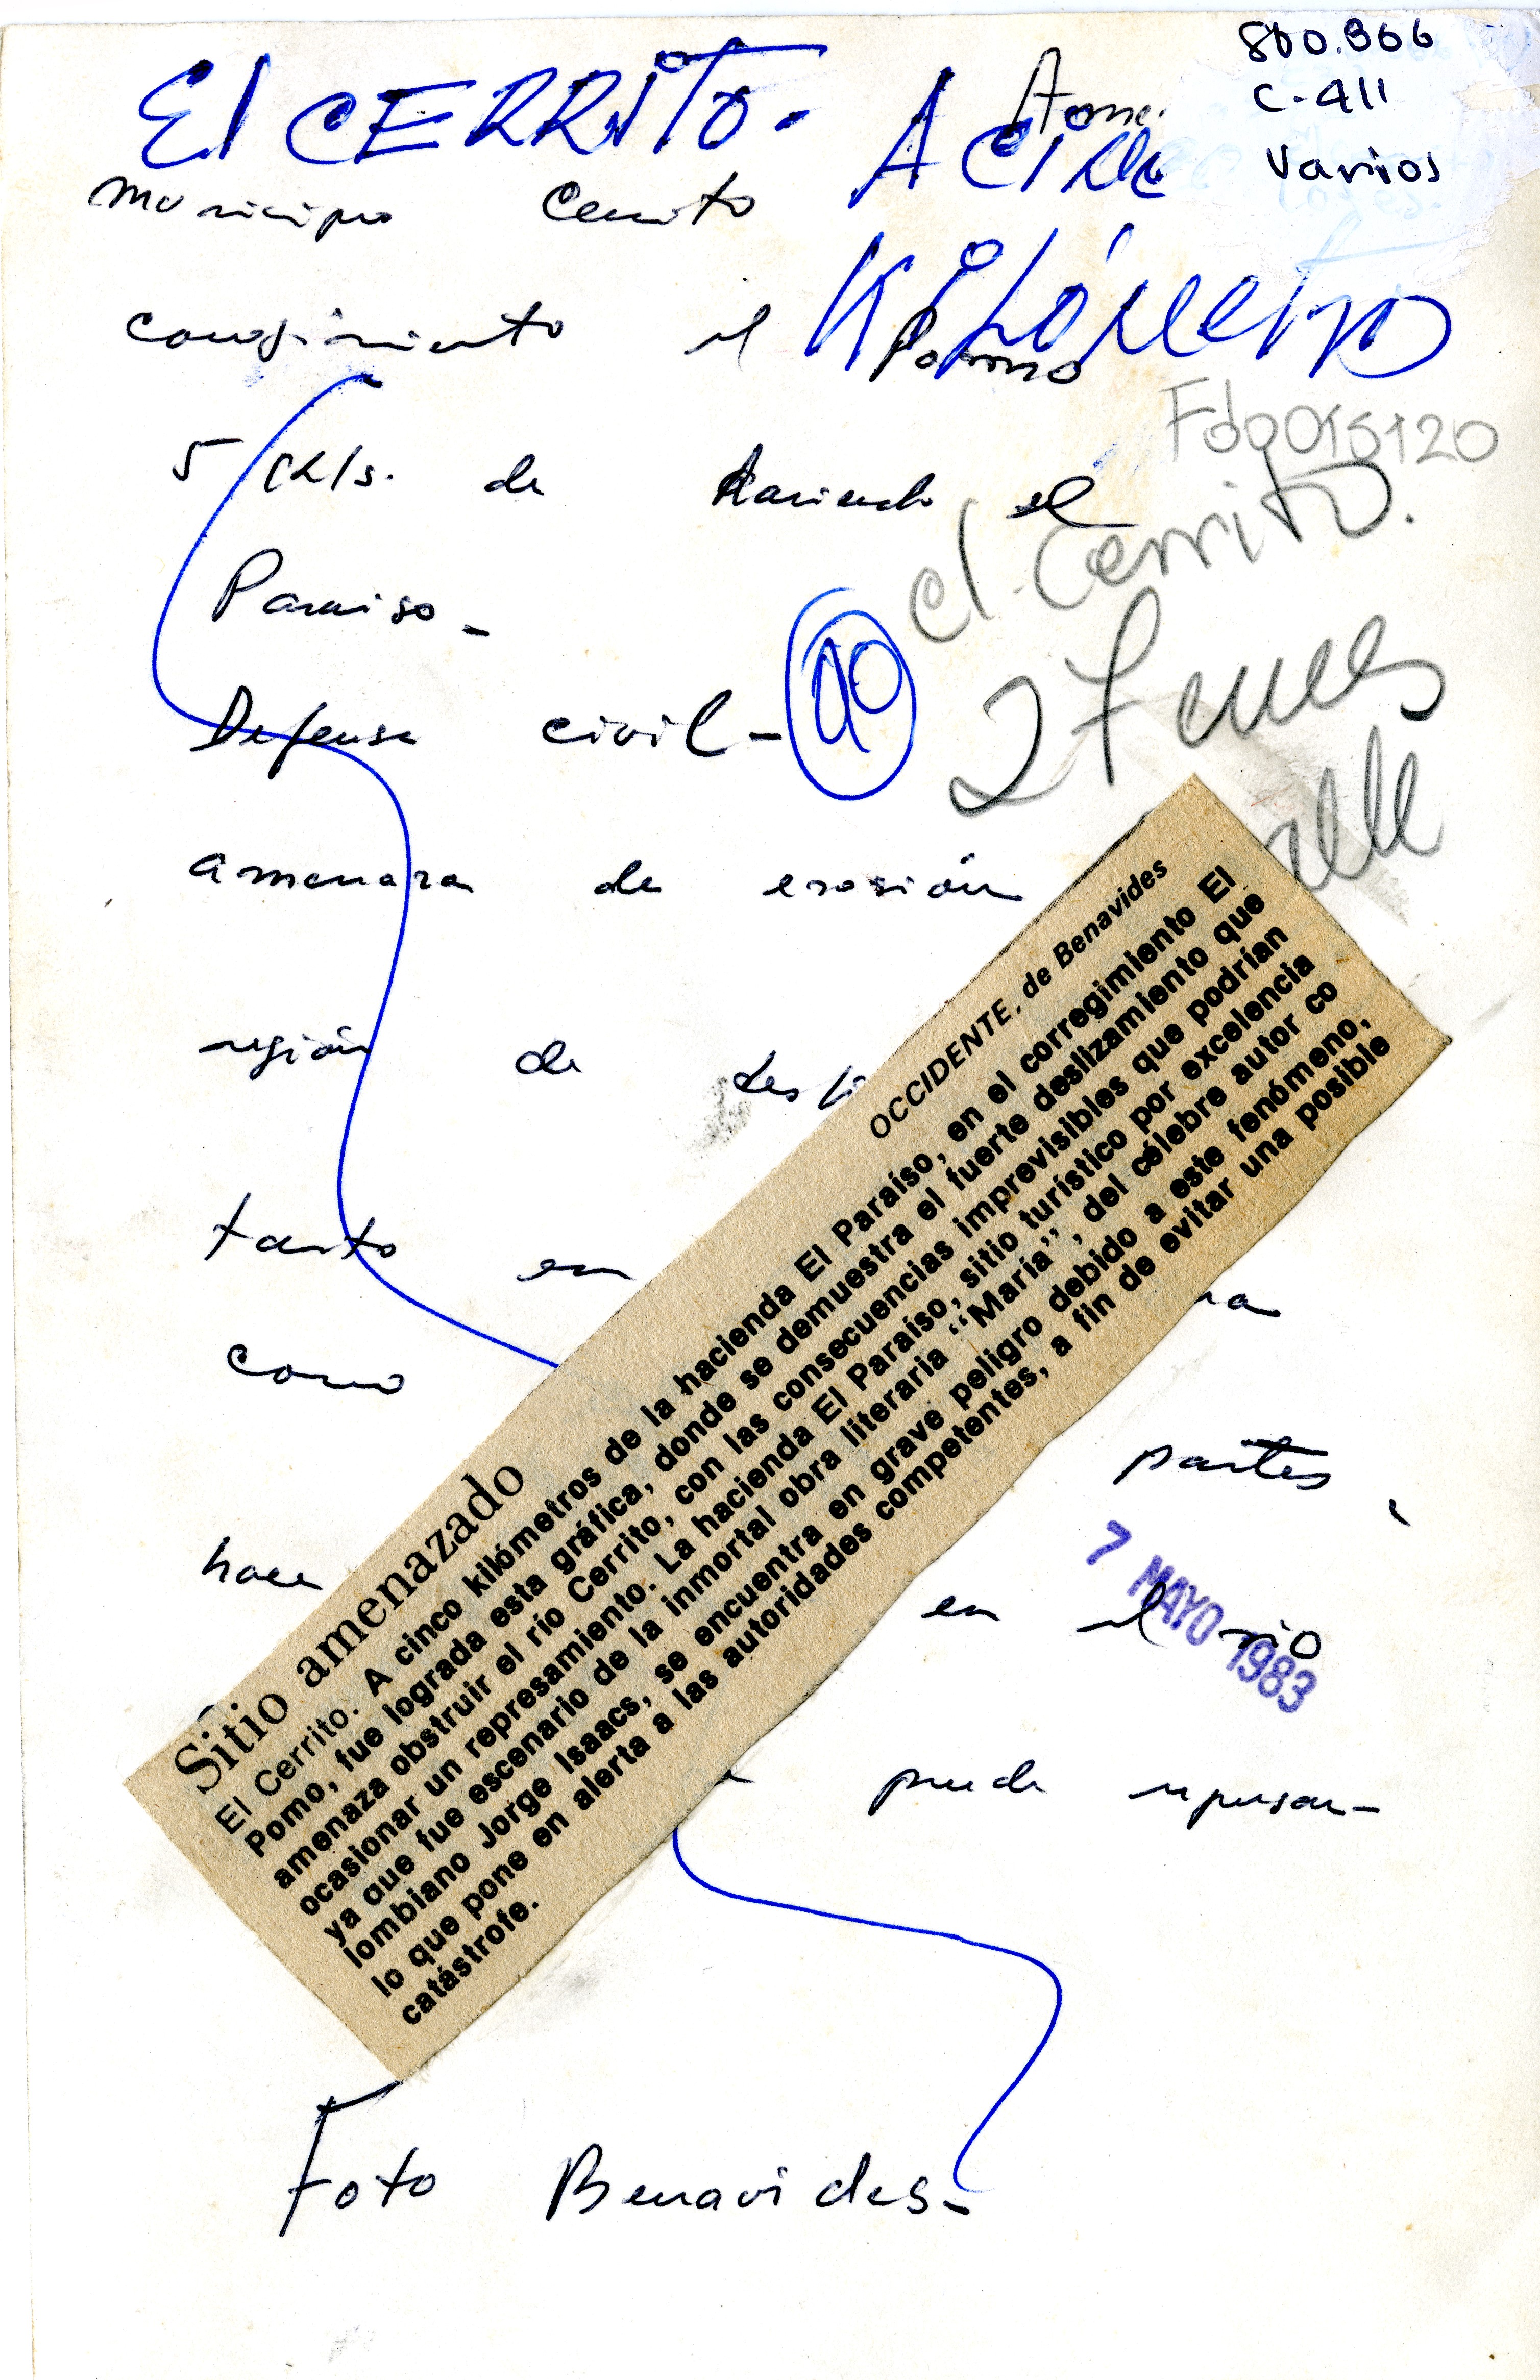 800.966
C-411
Varios
El CERRITO. A CINCO
KILÓMETRO
Municipio Cerrito
corregimiento el Pomo
Fdg015120
5 Kls. de Hacienda el
el Cerrito.
Paraiso-
Defensa civil-
amenaza de erosión
región de
tanto en
como
partes,
hace
en el rio
7 MAYO 1983
puede represar-
OCCIDENTE, de Benavides
Sitio amenazado
El Cerrito. A cinco kilómetros de la hacienda El Paraíso, en el corregimiento El
Pomo, fue lograda esta gráfica, donde se demuestra el fuerte deslizamiento que
amenaza obstruir el río Cerrito, con las consecuencias imprevisibles que podrían
ocasionar un represamiento. La hacienda El Paraíso, sitio turístico por excelencia
ya que fue escenario de la inmortal obra literaria "María", del célebre autor co
lombiano Jorge Isaacs, se encuentra en grave peligro debido a este fenómeno,
lo que pone en alerta a las autoridades competentes, a fin de evitar una posible
catástrofe.
Foto Benavides-